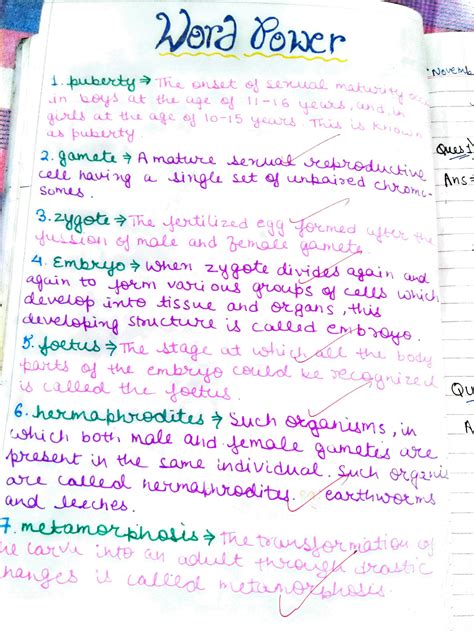 Word Power
1. puberty → The onset of sexual maturity
in boys at the age of 11-16 years, and in
girls at the age of 10-15 years. This is known
as puberty.
2. gamete → A mature sexual reproductive
cell having a single set of unpaired chromo-
somes.
3. zygote → The fertilized egg formed after the
fussion of male and female gamete
4. Embryo → when zygote divides again and
again to form various groups of cells which
develop into tissue and organs, this
developing structure is called embroyo.
5. foetus → The stage at which all the body
parts of the embryo could be recognized
is called the foetus.
6. hermaphrodites → Such organisms, in
which both male and female gametes are
present in the same individual. Such organi
are called hermaphrodites. eg. earthworms
and leeches.
7. metamorphosis → The transformation of
the larve into an adult through drastic
changes is called metamorphosis.
Novemb
Ques 1
Ans →
Qu
A